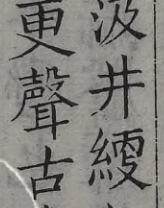 汲井綆
更聲古